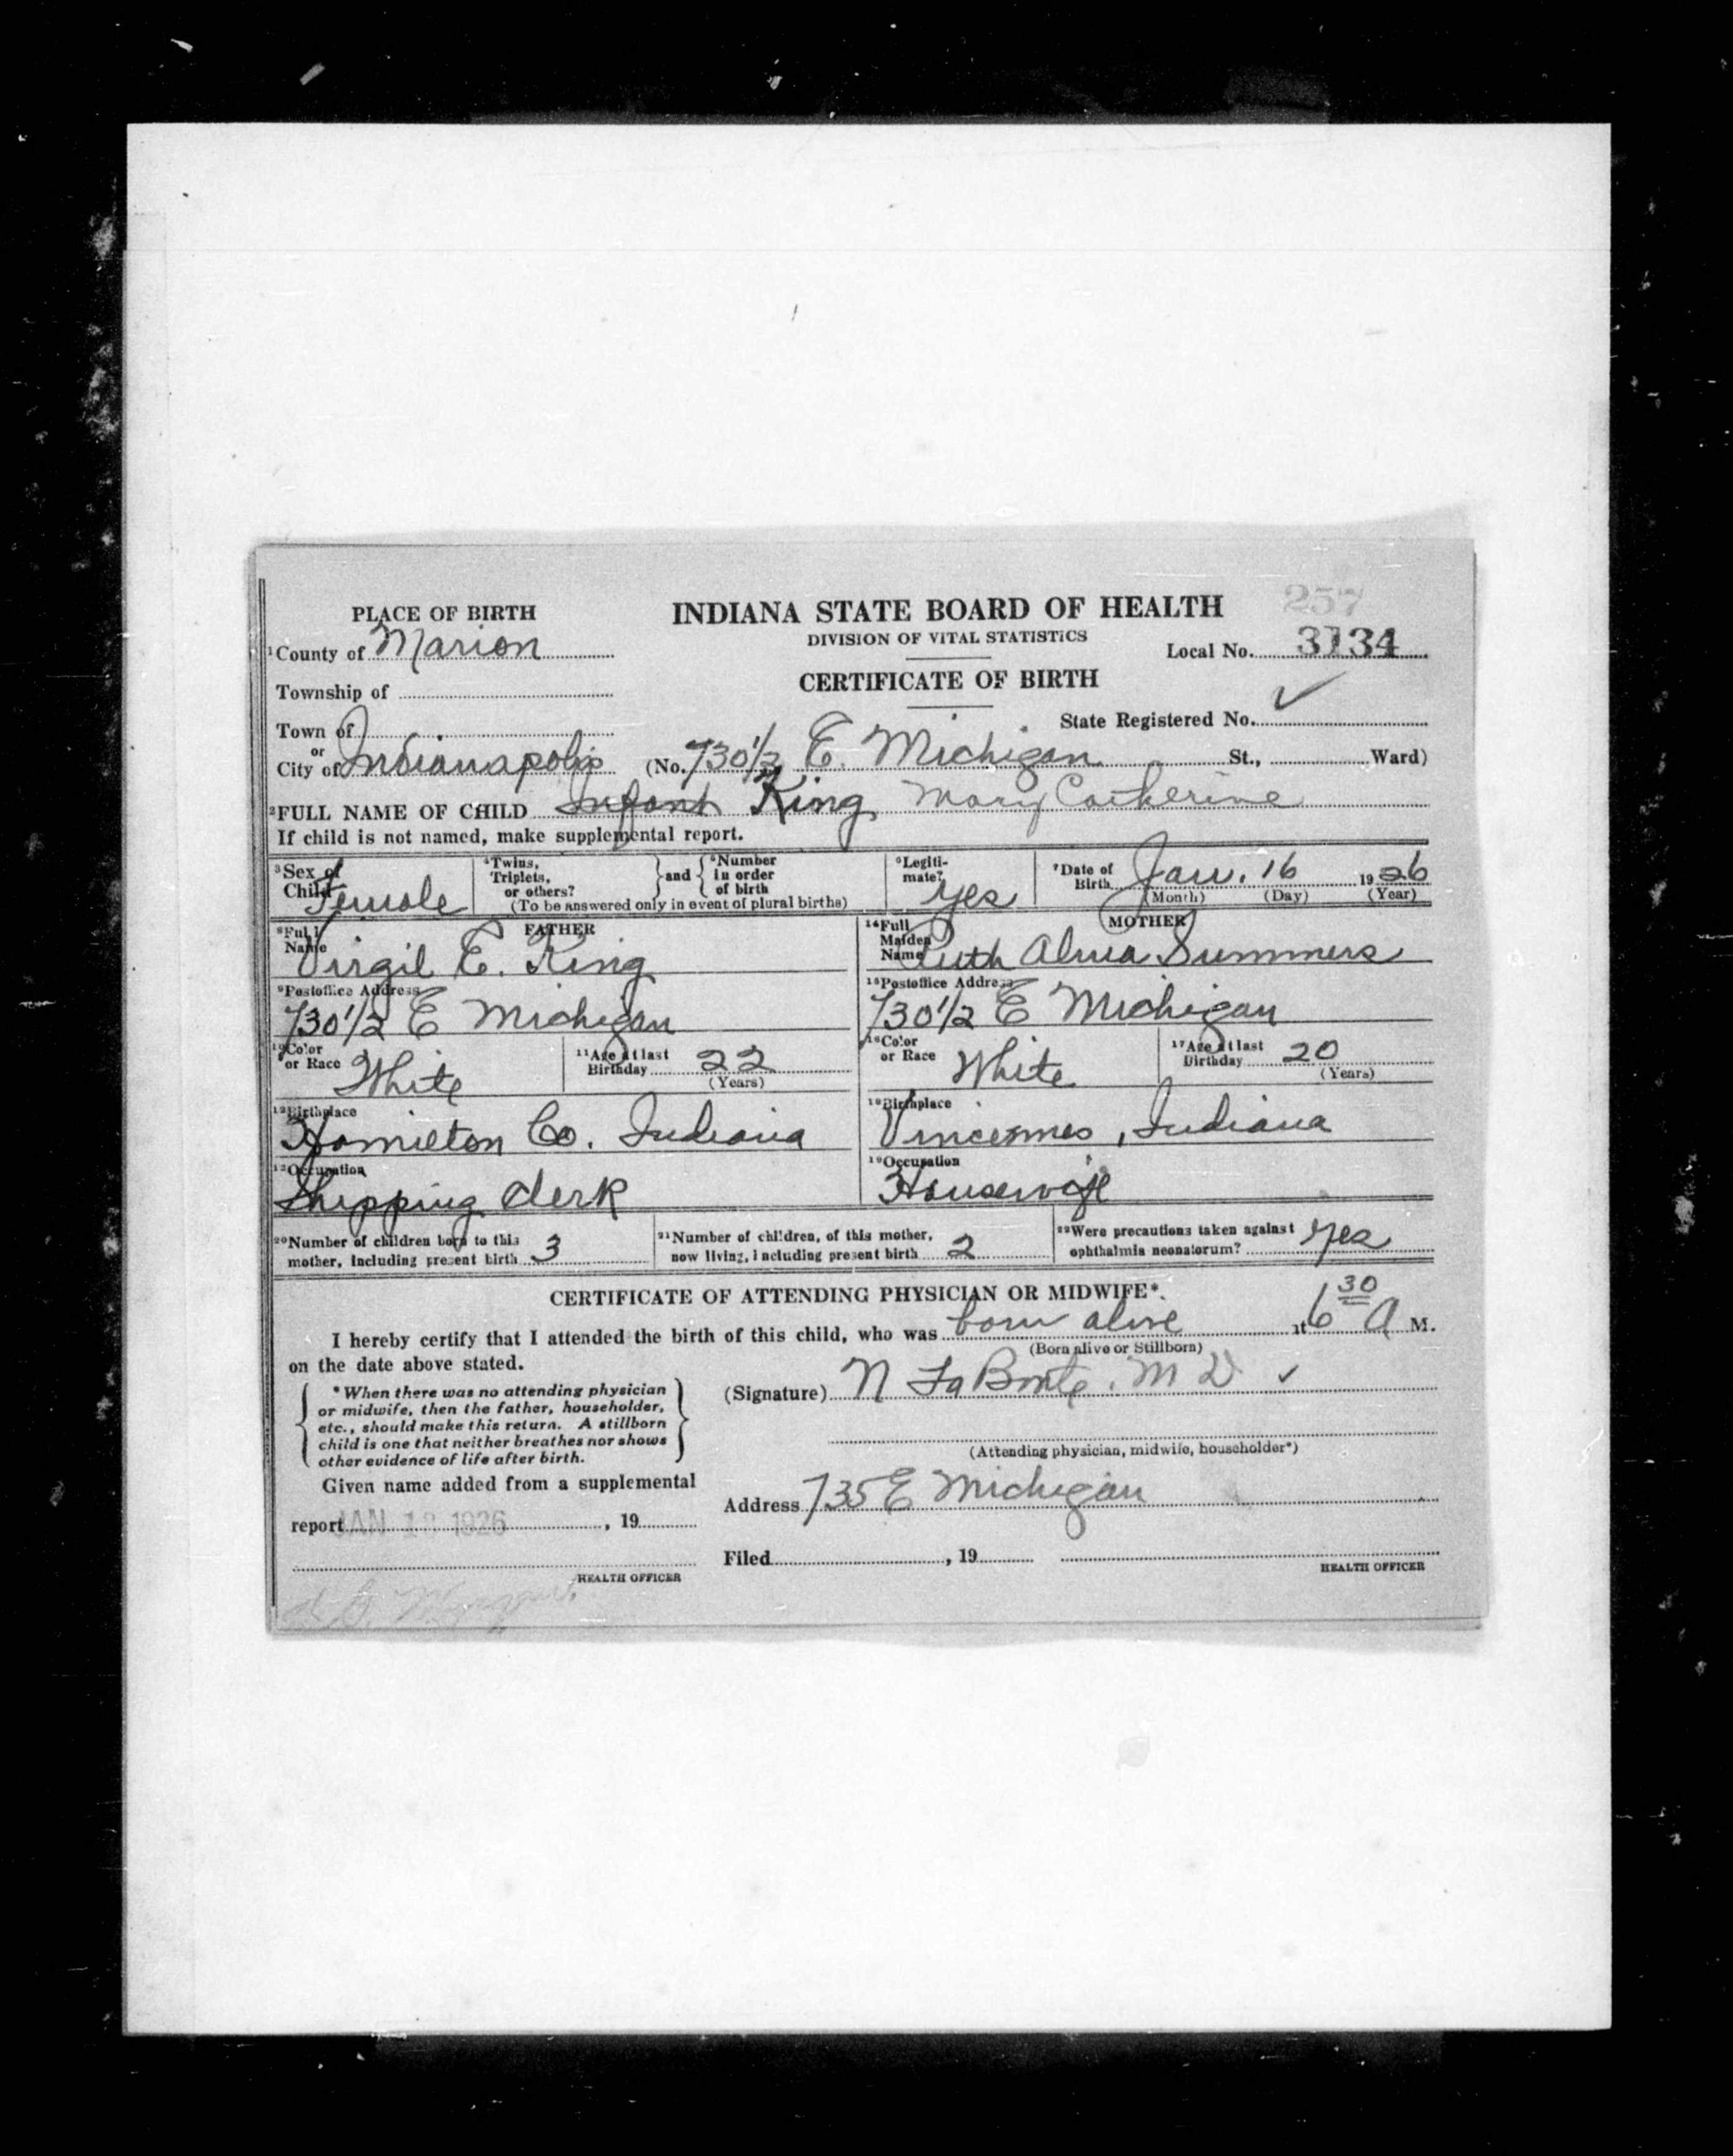 PLACE OF BIRTH
INDIANA STATE BOARD OF HEALTH
257
DIVISION OF VITAL STATISTICS
1 County of Marion
Local No. 3134
CERTIFICATE OF BIRTH
Township of
State Registered No. ✓
Town of
or
City of Indianapolis (No. 730 1/2 E. Michigan St., Ward)
2 FULL NAME OF CHILD Infant King Mary Catherine
If child is not named, make supplemental report.
3 Sex of Child Female
4 Twins, Triplets, or others? and 5 Number in order of birth
(To be answered only in event of plural births)
6 Legitimate? yes
7 Date of Birth Jan. 16 1926
(Month) (Day) (Year)
FATHER
8 Full Name Virgil E. King
9 Postoffice Address
730 1/2 E Michigan
10 Color or Race White
11 Age at last Birthday 22
(Years)
12 Birthplace
Hamilton Co. Indiana
13 Occupation
Shipping Clerk
MOTHER
14 Full Maiden Name Ruth Alma Summers
15 Postoffice Address
730 1/2 E Michigan
16 Color or Race White
17 Age at last Birthday 20
(Years)
18 Birthplace
Vincennes, Indiana
19 Occupation
Housewife
20 Number of children born to this mother, including present birth 3
21 Number of children, of this mother, now living, including present birth 2
22 Were precautions taken against ophthalmia neonatorum? yes
CERTIFICATE OF ATTENDING PHYSICIAN OR MIDWIFE*.
I hereby certify that I attended the birth of this child, who was born alive at 6 30 A M.
(Born alive or Stillborn)
on the date above stated.
* When there was no attending physician
or midwife, then the father, householder,
etc., should make this return. A stillborn
child is one that neither breathes nor shows
other evidence of life after birth.
(Signature) N LaBonte. M D ✓
(Attending physician, midwife, householder*)
Given name added from a supplemental
Address 735 E Michigan
report JAN 1926, 19
Filed , 19
HEALTH OFFICER
HEALTH OFFICER